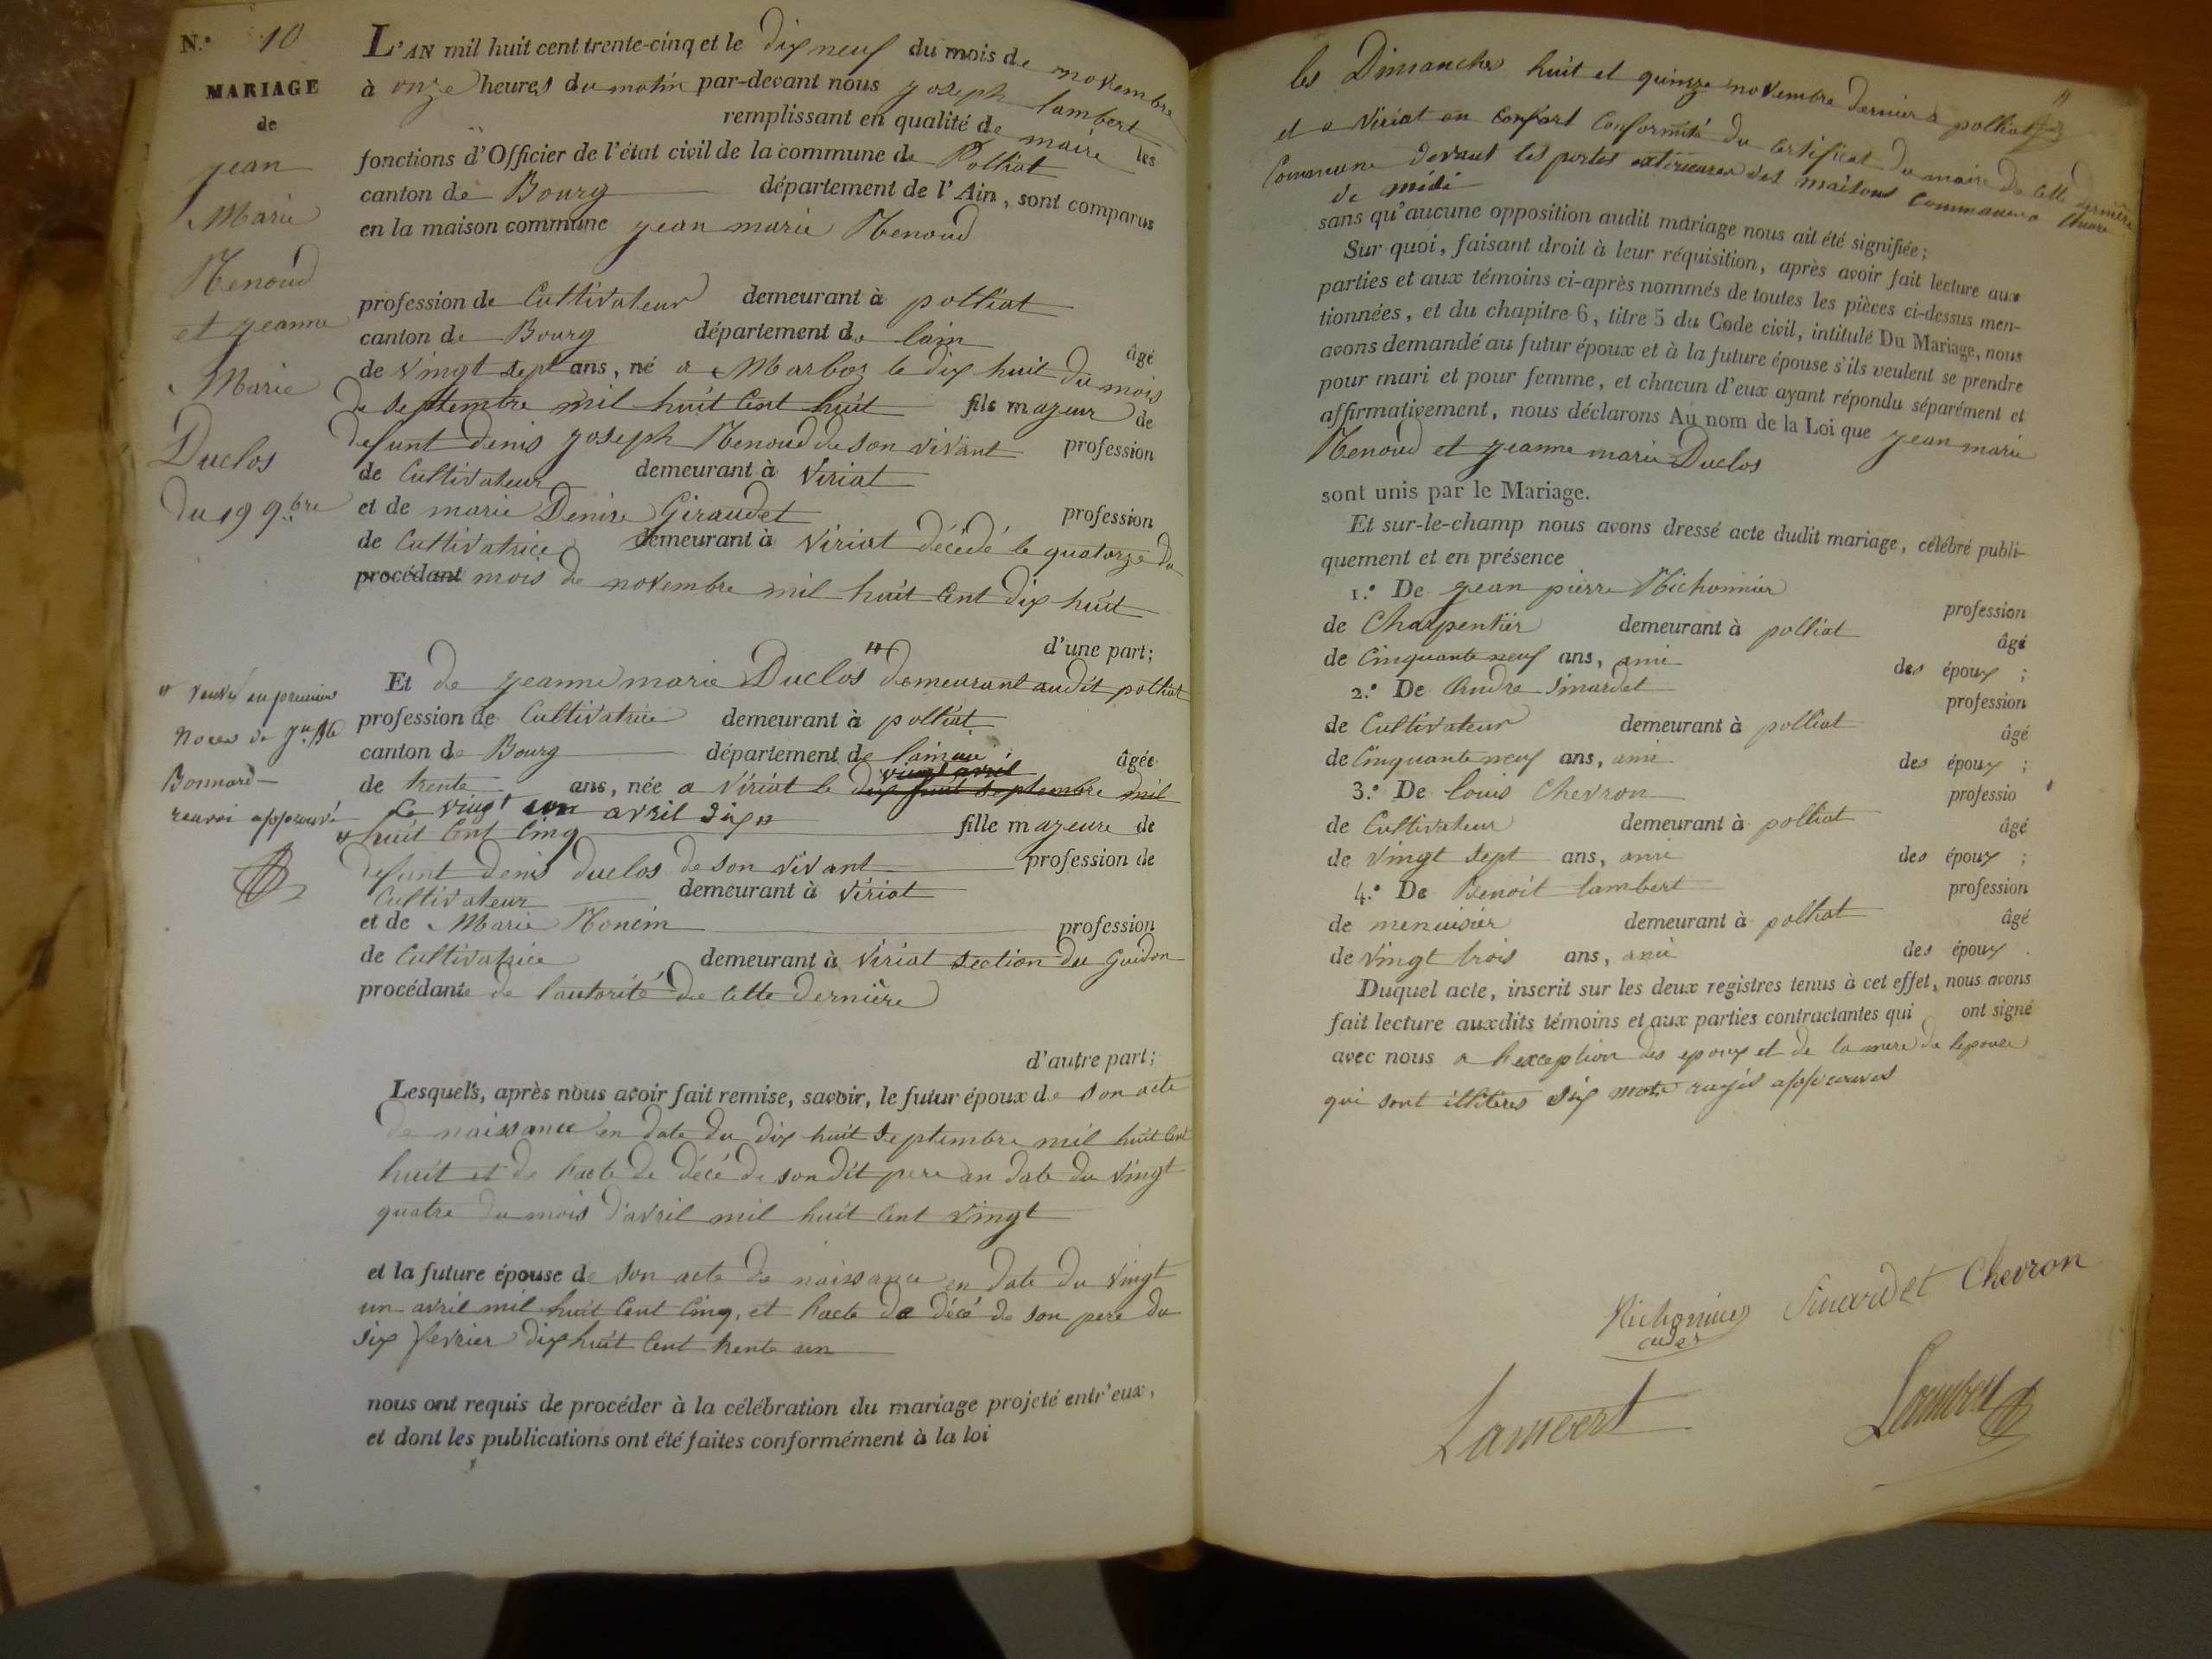 N.º 10
MARIAGE
de
jean
Marie
Renoud
et jeanne
Marie
Duclos
du 19 9.bre
L'AN mil huit cent trente-cinq et le dix neuf du mois de novembre
à onze heures du matin par-devant nous joseph lambert
remplissant en qualité de maire les
fonctions d'Officier de l'état civil de la commune de Polliat
canton de Bourg département de l'Ain, sont comparus
en la maison commune jean marie Renoud
profession de Cultivateur demeurant à polliat
canton de Bourg département de lain
âgé
de vingt sept ans, né a Marboz le dix huit du mois
de Septembre mil huit Cent huit fils majeur de
defunt denis joseph Renoud de son vivant profession
de Cultivateur demeurant à Viriat
et de marie Denise Giraudet profession
de Cultivatrice demeurant à Viriat décédé le quatorze du
procédant mois de novembre mil huit Cent dix huit
d'une part;
Et de jeanne marie Duclos demeurant audit polliat
profession de Cultivatrice demeurant à polliat
canton de Bourg département de lain
âgée
de trente ans, née a Viriat le dix huit Septembre mil
vingt avril
Le vingt un avril dix
huit Cent Cinq fille majeure de
defunt denis duclos de son vivant profession de
Cultivateur demeurant à Viriat
et de Marie Moncin profession
de Cultivatrice demeurant à Viriat section du Guidon
procédante de l'autorité de cette dernière
d'autre part;
" veuve en premiere
noces de
Bonnard
renvoi approuvé
Lesquels, après nous avoir fait remise, savoir, le futur époux de son acte
de naissance en date du dix huit Septembre mil huit Cent
huit et de l'acte de décé de son dit pere en date du vingt
quatre du mois d'avril mil huit Cent vingt
et la future épouse de son acte de naissance en date du vingt
un avril mil huit Cent Cinq, et l'acte de décé de son pere du
six fevrier dix huit Cent trente un
nous ont requis de procéder à la célébration du mariage projeté entr'eux,
et dont les publications ont été faites conformément à la loi
les Dimanches huit et quinze novembre dernier a polliat
et a Viriat en Conformité du Certificat du maire de cette dernière
Commune devant les portes exterieures des maisons Communes a lheure
de midi
sans qu'aucune opposition audit mariage nous ait été signifiée;
Sur quoi, faisant droit à leur réquisition, après avoir fait lecture aux
parties et aux témoins ci-après nommés de toutes les pièces ci-dessus men-
tionnées, et du chapitre 6, titre 5 du Code civil, intitulé Du Mariage, nous
avons demandé au futur époux et à la future épouse s'ils veulent se prendre
pour mari et pour femme, et chacun d'eux ayant répondu séparément et
affirmativement, nous déclarons Au nom de la Loi que jean marie
Renoud et jeanne marie Duclos
sont unis par le Mariage.
Et sur-le-champ nous avons dressé acte dudit mariage, célébré publi-
quement et en présence
1.º De jean pierre Michonnier profession
de Charpentier demeurant à polliat âgé
de Cinquante neuf ans, ami des époux;
2.º De Andre Sinardet profession
de Cultivateur demeurant à polliat âgé
de Cinquante neuf ans, ami des époux;
3.º De louis Chevron professio
de Cultivateur demeurant à polliat âgé
de vingt sept ans, ami des époux;
4.º De Benoit lambert profession
de menuisier demeurant à polliat âgé
de vingt trois ans, ami des époux.
Duquel acte, inscrit sur les deux registres tenus à cet effet, nous avons
fait lecture auxdits témoins et aux parties contractantes qui ont signé
avec nous a l'exception des epoux et de la mere de lepouse
qui sont illitéres dix mots rayés approuvés
Michonnier Sinardet Chevron
Lambert Lambert